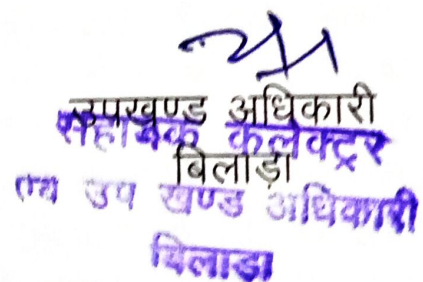 उपखण्ड अधिकारी
सहायक कलेक्टर
बिलाड़ा
एवं उप खण्ड अधिकारी
बिलाडा